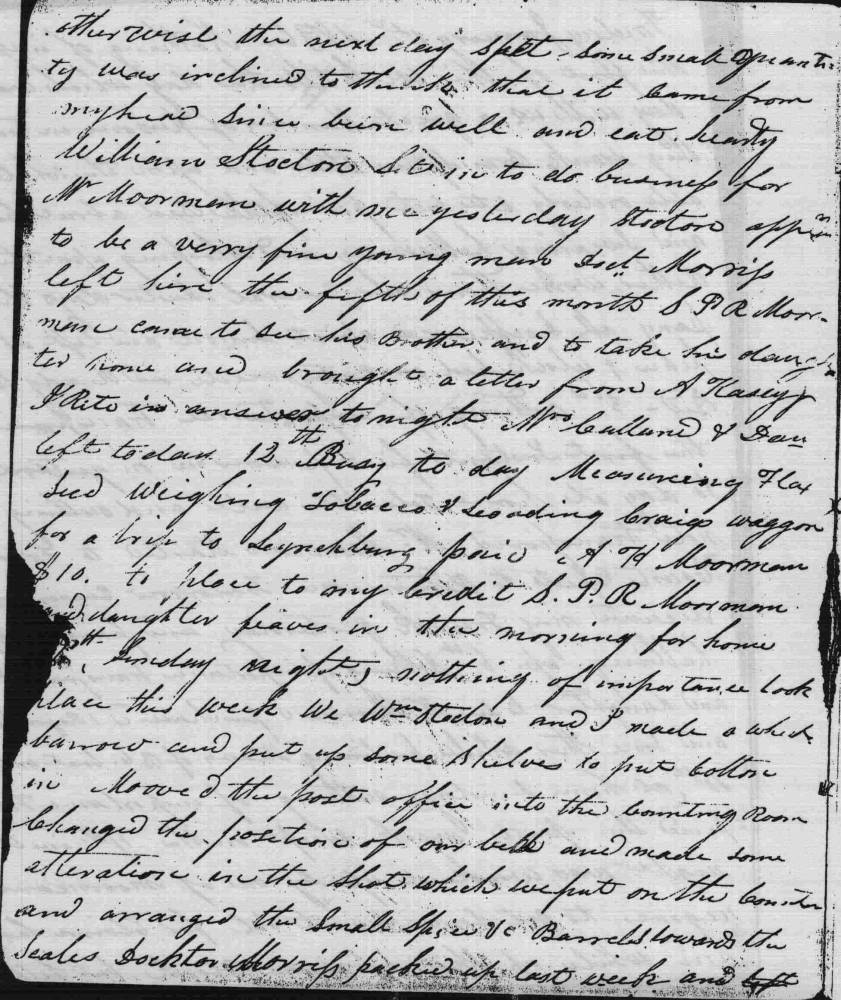 otherwise the next day spit some small Quanti
ty was inclined to think that it came from
my head since been well and eat hearty
William Stocton Set in to do business for
Mr Moorman with me yesterday Stocton apprs
to be a verry fine young man Doct. Morriss
left hire the fifth of this month S P R Moor-
man came to see his Brother and to take his daugh
ter home and brought a letter from A Kasey
I Rite in answer to night Mrs Calland & Dau
left today. 12th Busy to day Measureing Flax
Seed Weighing Tobacco & Loading Craigs waggon
for a trip to Lynchburg paid A H Moorman
$10. to place to my Credit S. P. R Moorman
and daughter leaves in the morning for home
th, Sunday night, nothing of importance took
place this week We Wm Stocton and I made a wheel
barrow and put up some Shelves to put Cotton
in Mooved the post office into the Counting Room
Changed the position of our bed and made some
alteration in the Shot which we put on the Counter
and arranged the Small Spice &c Barrels towards the
Scales Docktor Morriss packed up last week and left